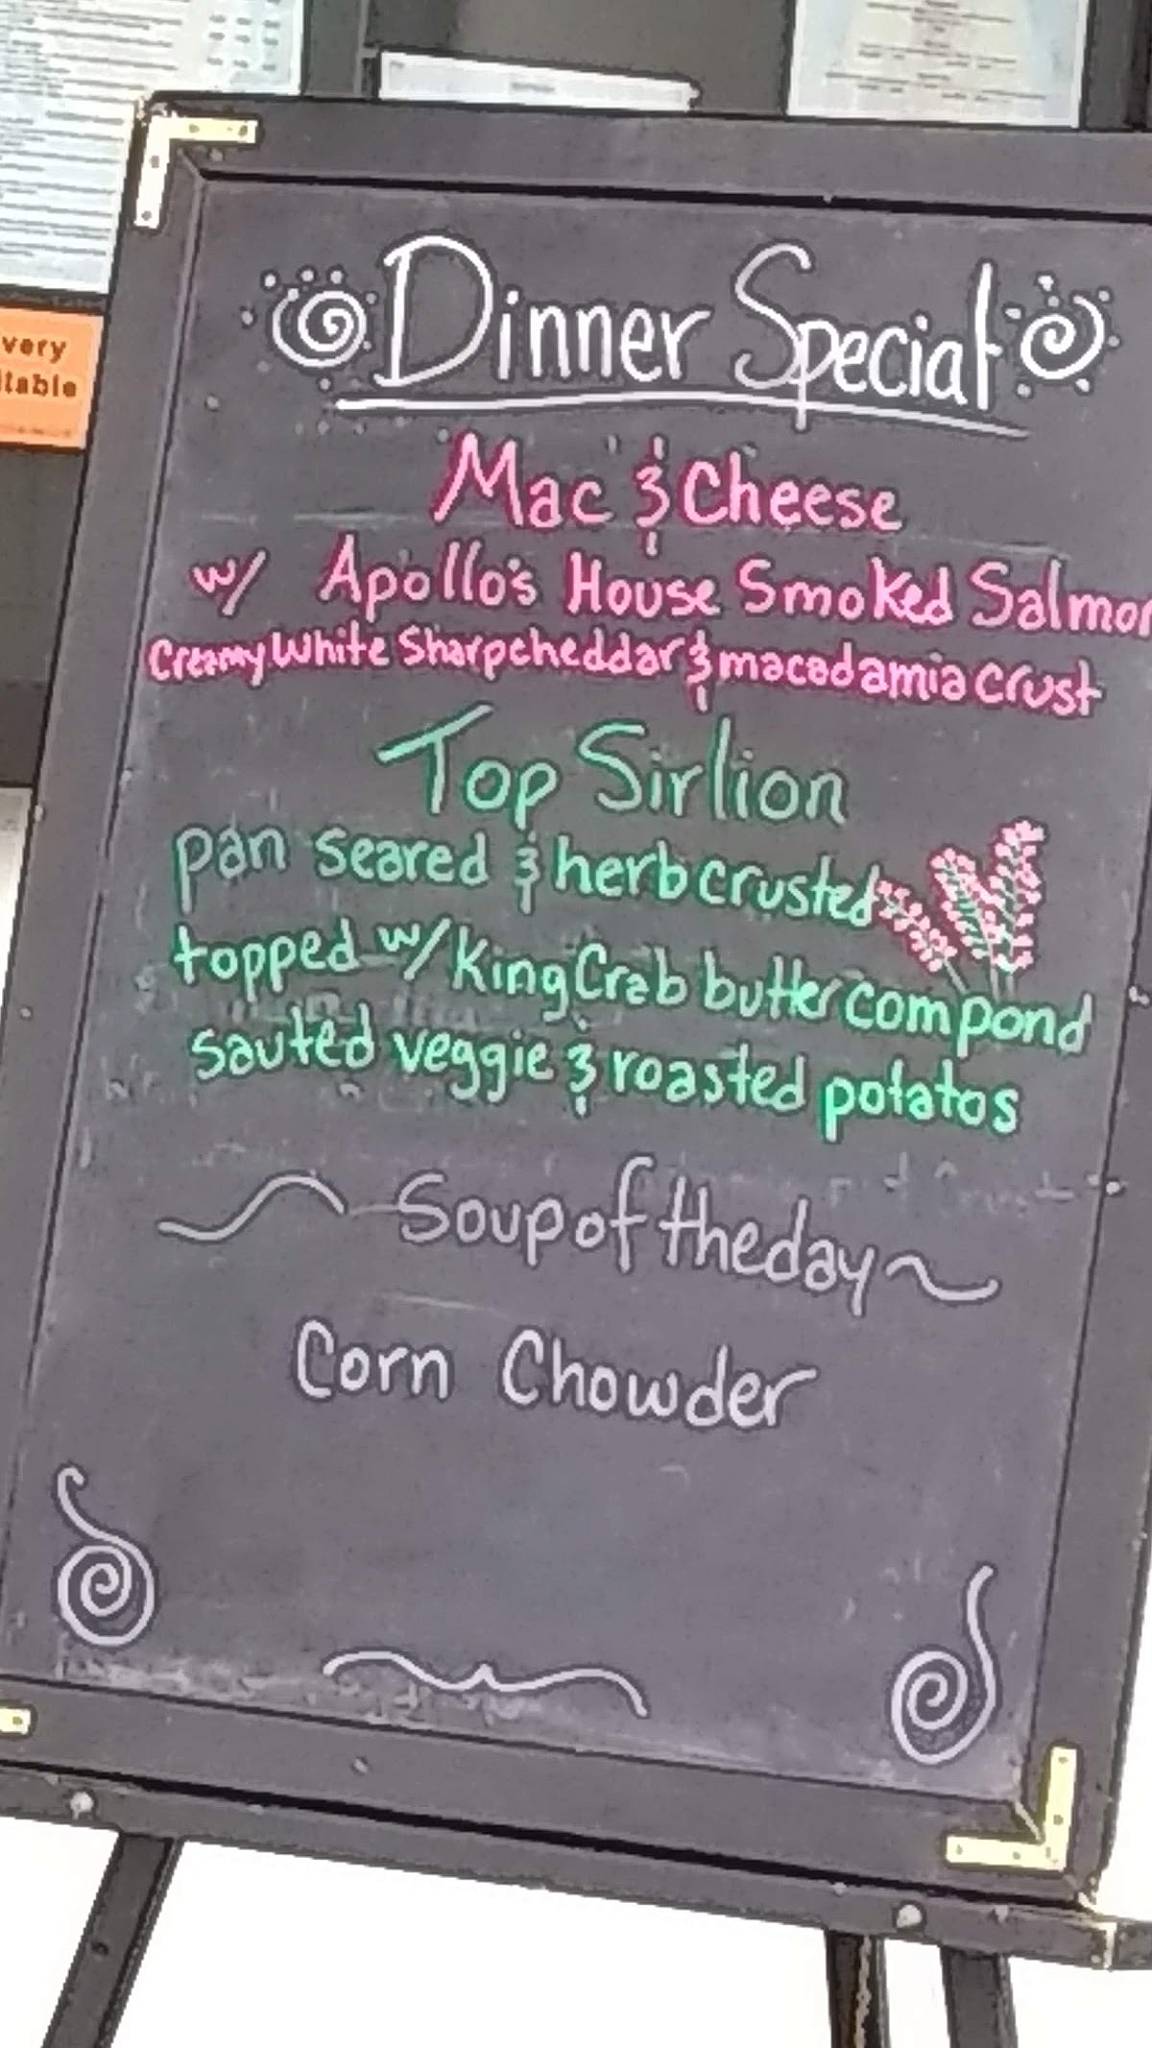 very
itable
Dinner Special
Mac & Cheese
w/ Apollo's House Smoked Salmon
Creamy White Sharp cheddar & macadamia crust
Top Sirlion
pan seared & herb crusted
topped w/ King Crab butter compond
sauted veggie & roasted potatos
Soup of the day
Corn Chowder